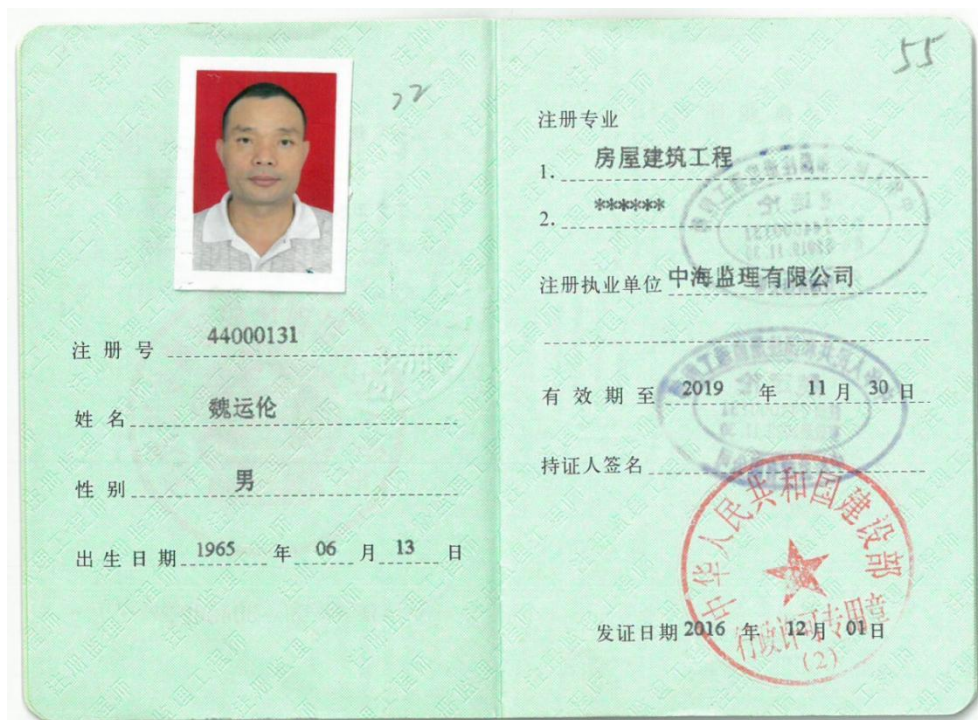 22
注册号 44000131
姓名 魏运伦
性别 男
出生日期 1965 年 06 月 13 日
55
注册专业
1. 房屋建筑工程
2. ******
注册执业单位 中海监理有限公司
有效期至 2019 年 11 月 30 日
持证人签名
中华人民共和国建设部
行政许可专用章
(2)
发证日期 2016 年 12月 01日